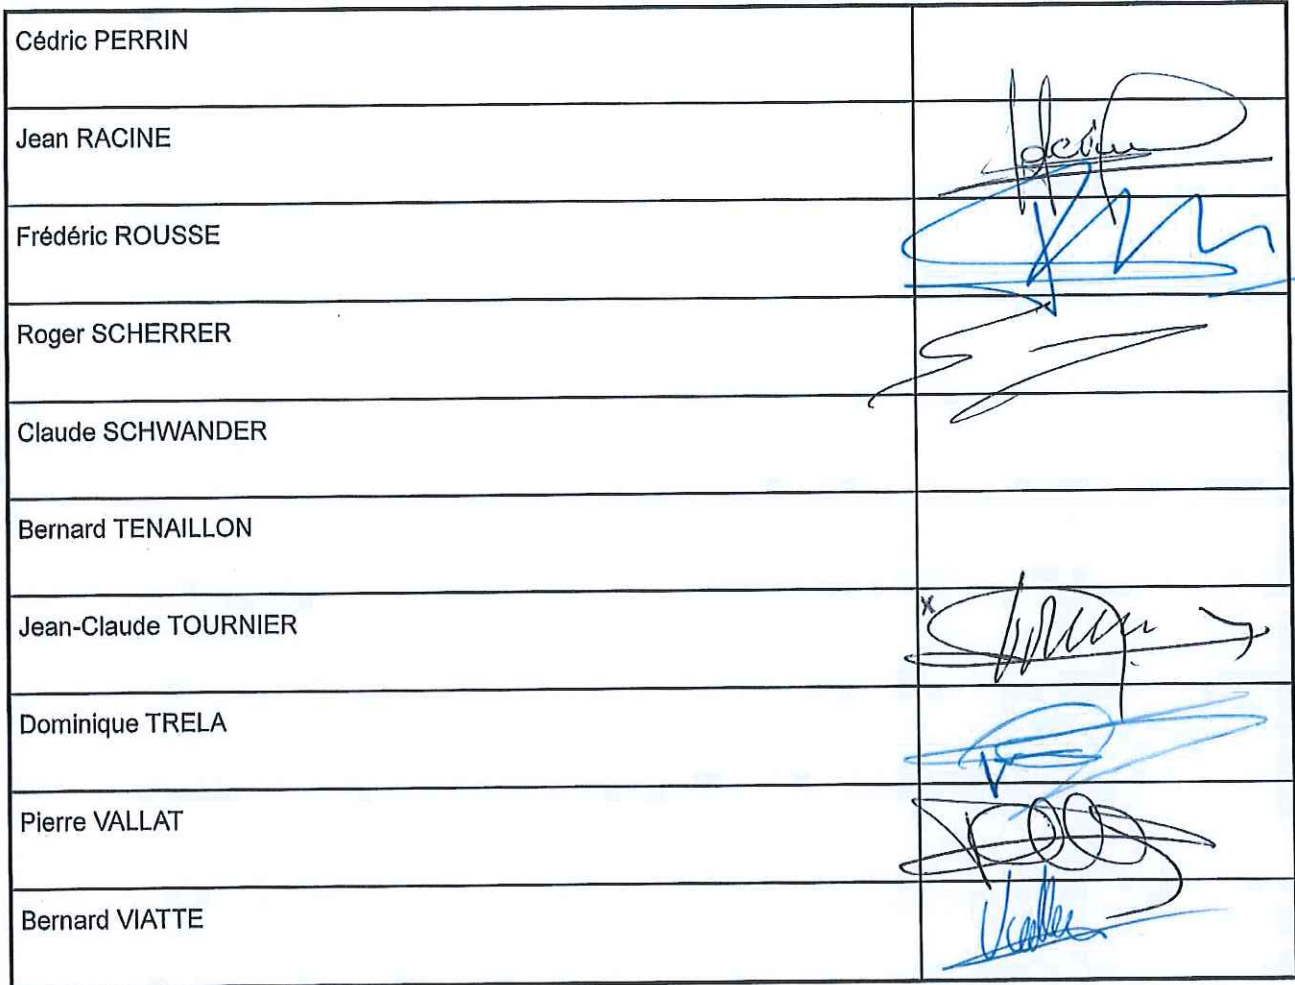 Cédric PERRIN
Jean RACINE
Frédéric ROUSSE
Roger SCHERRER
Claude SCHWANDER
Bernard TENAILLON
Jean-Claude TOURNIER
x
Dominique TRELA
Pierre VALLAT
Bernard VIATTE